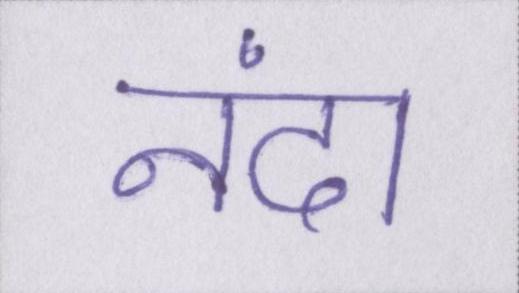 नंदा